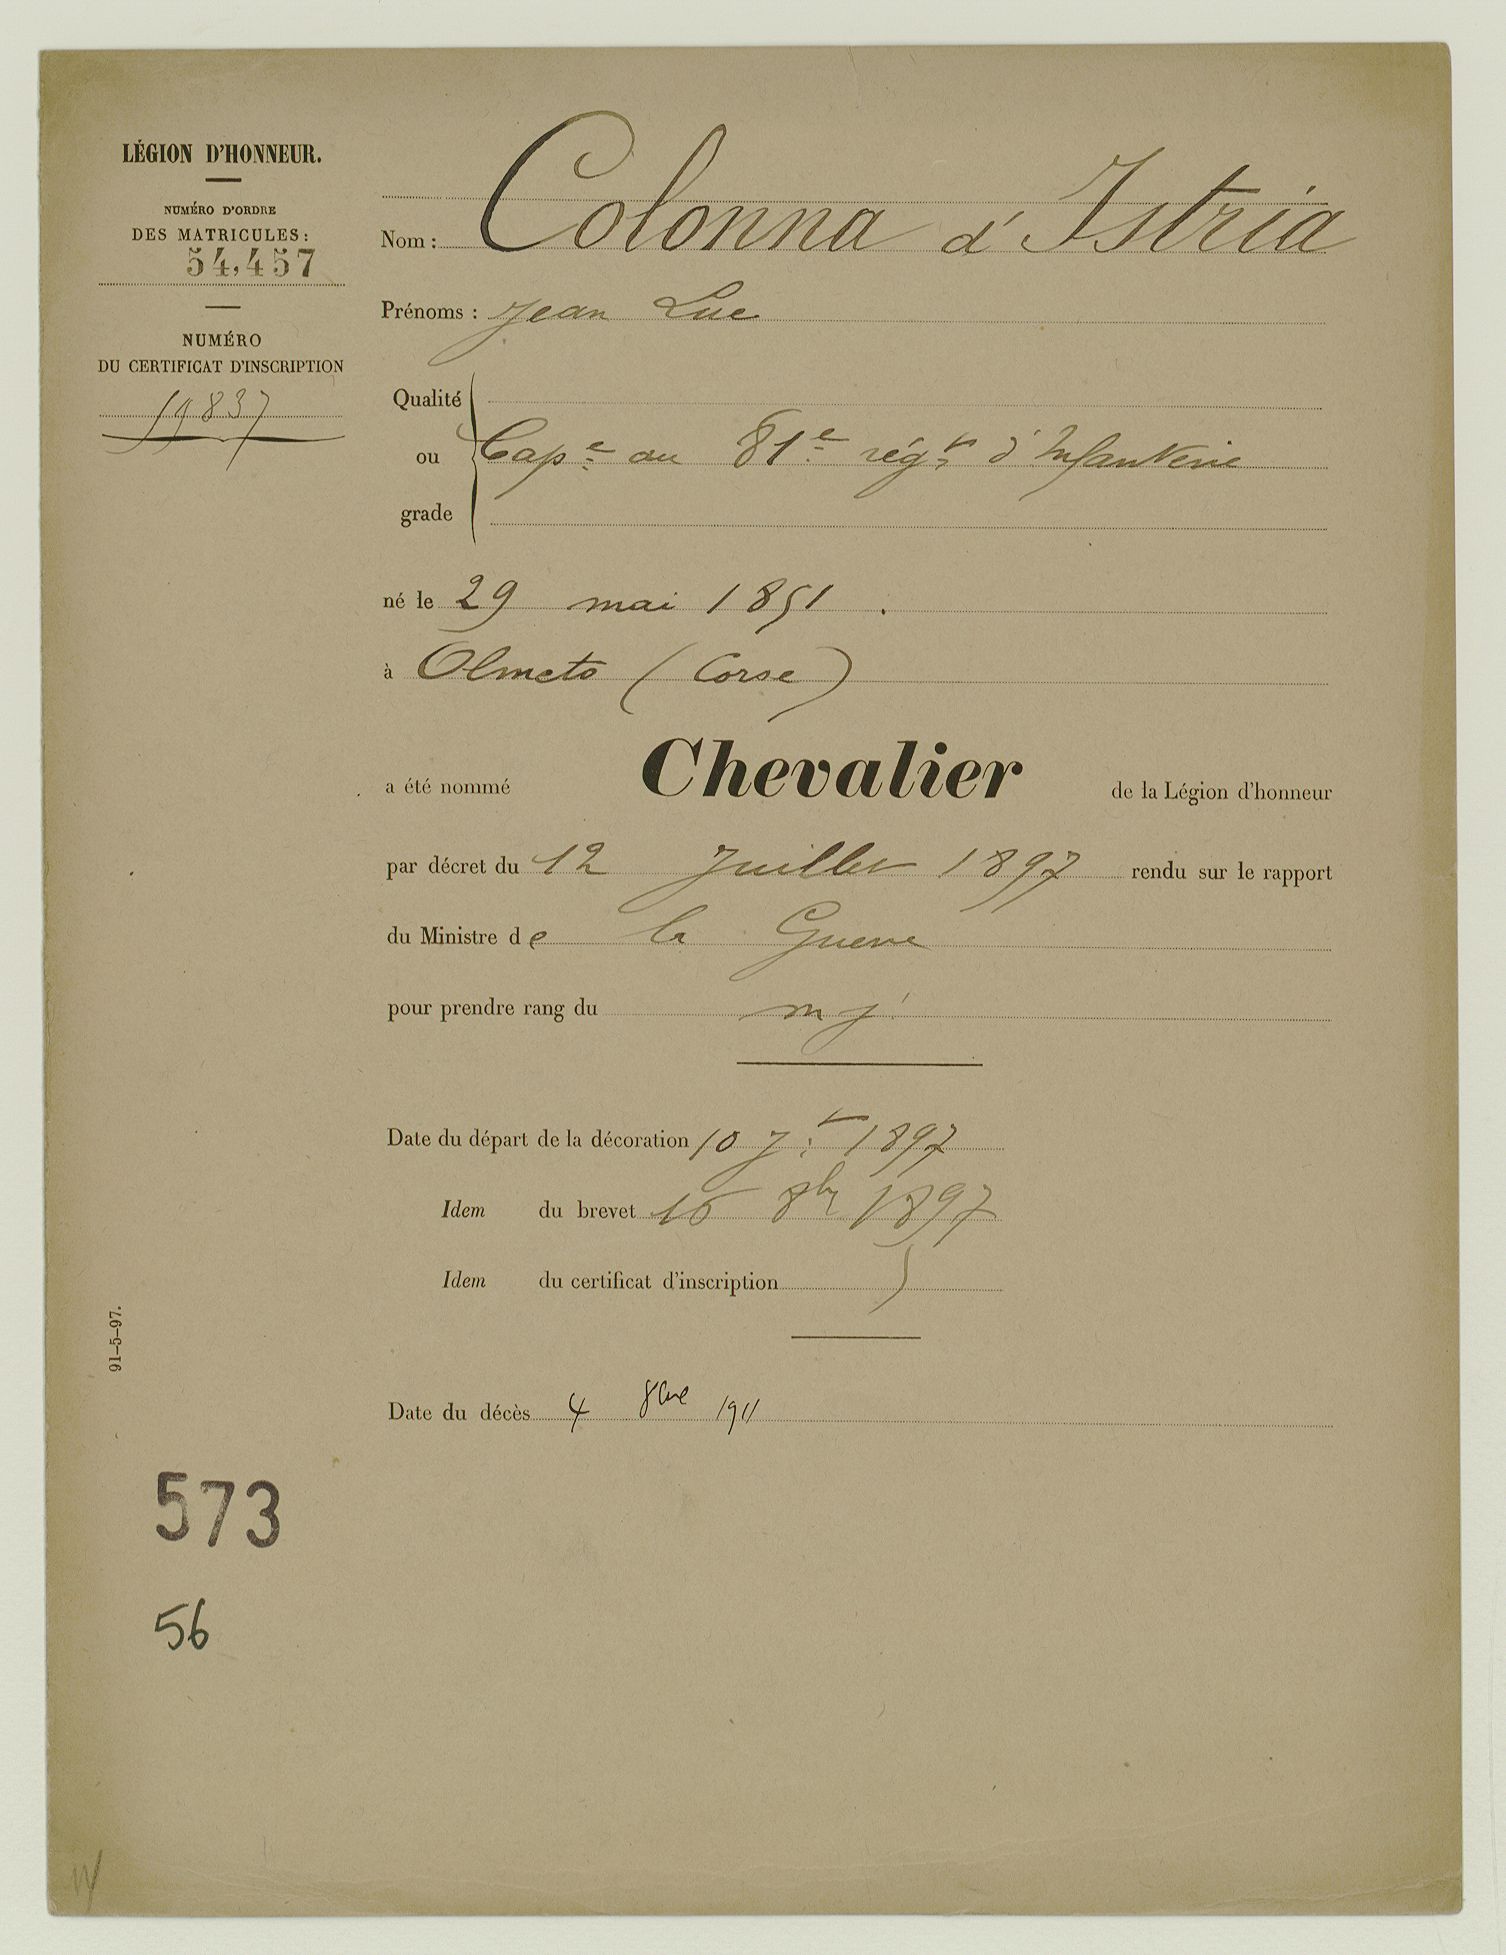 LÉGION D'HONNEUR.
NUMÉRO D'ORDRE
DES MATRICULES:
54,457
NUMÉRO
DU CERTIFICAT D'INSCRIPTION
19837
Nom : Colonna d'Istria
Prénoms : Jean Luc
Qualité
ou Cap.e au 81.e rég.t d'Infanterie
grade
né le 29 mai 1851.
à Olmeto (Corse)
a été nommé Chevalier de la Légion d'honneur
par décret du 12 Juillet 1897 rendu sur le rapport
du Ministre de la Guerre
pour prendre rang du m j
Date du départ de la décoration 10 1897
Idem du brevet 16 8bre 1897
Idem du certificat d'inscription
Date du décès 4 8bre 1911
91-5-97.
573
56